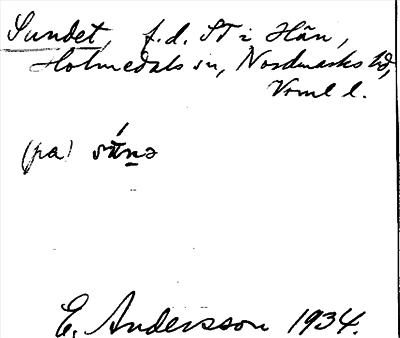 Sundet, f.d. ST i Hån,
Holmedals sn, Nordmarks hd,
Vrml l.
(pa) sú̄n̲ə
E. Andersson 1934.